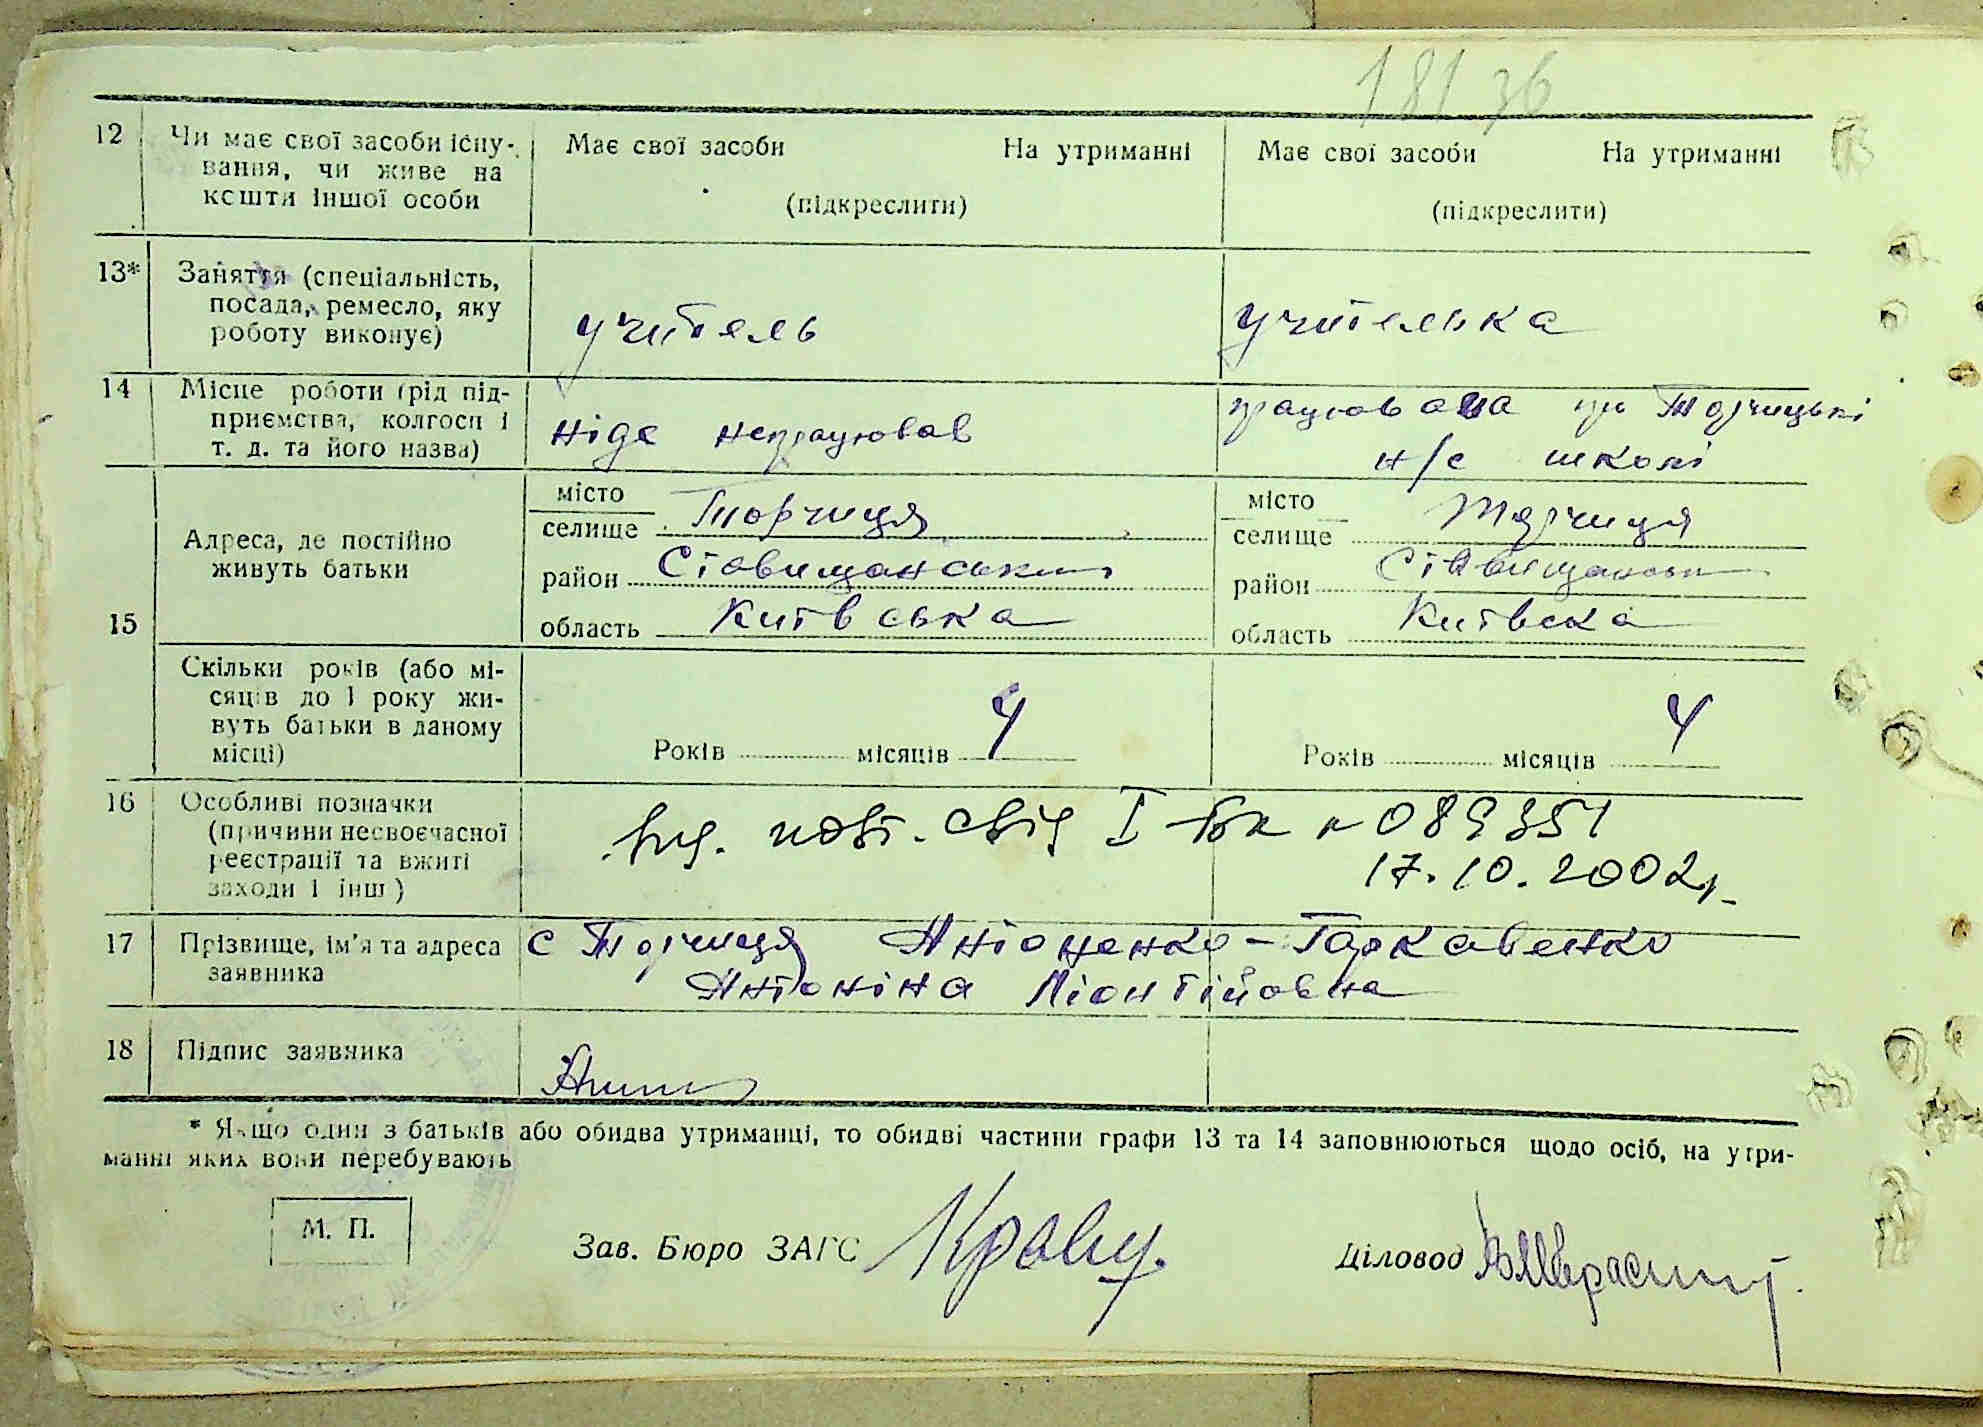 181 36
12 Чи має свої засоби існу- Має свої засоби На утриманні Має свої засоби На утриманні
вання, чи живе на
кошти іншої особи (підкреслити) (підкреслити)
13* Заняття (спеціальність,
посада, ремесло, яку учитель учителька
роботу виконує)
14 Місце роботи (рід під- працювала при Торчицькі
приємства, колгосп і ніде непрацював
т. д. та його назва) н/с школі
місто Торчиця місто Торчиця
селище селище
Адреса, де постійно район Ставищанський район Ставищанськ
живуть батьки
15 область Київська область Київска
Скільки років (або мі-
сяців до 1 року жи-
вуть батьки в даному
місці) Років місяців 4 Років місяців 4
16 Особливі позначки
(причини несвоєчасної повт. свід І-бк № 089351
реєстрації та вжиті 17.10.2002р.
заходи і інш.)
17 Прізвище, ім'я та адреса с Торчиця Антоненко-Гаркавенко
заявника Антоніна Ліонтіївна
18 Підпис заявника
* Якщо один з батьків або обидва утриманці, то обидві частини графи 13 та 14 заповнюються щодо осіб, на утри-
манні яких вони перебувають
М. П.
Зав. Бюро ЗАГС Діловод